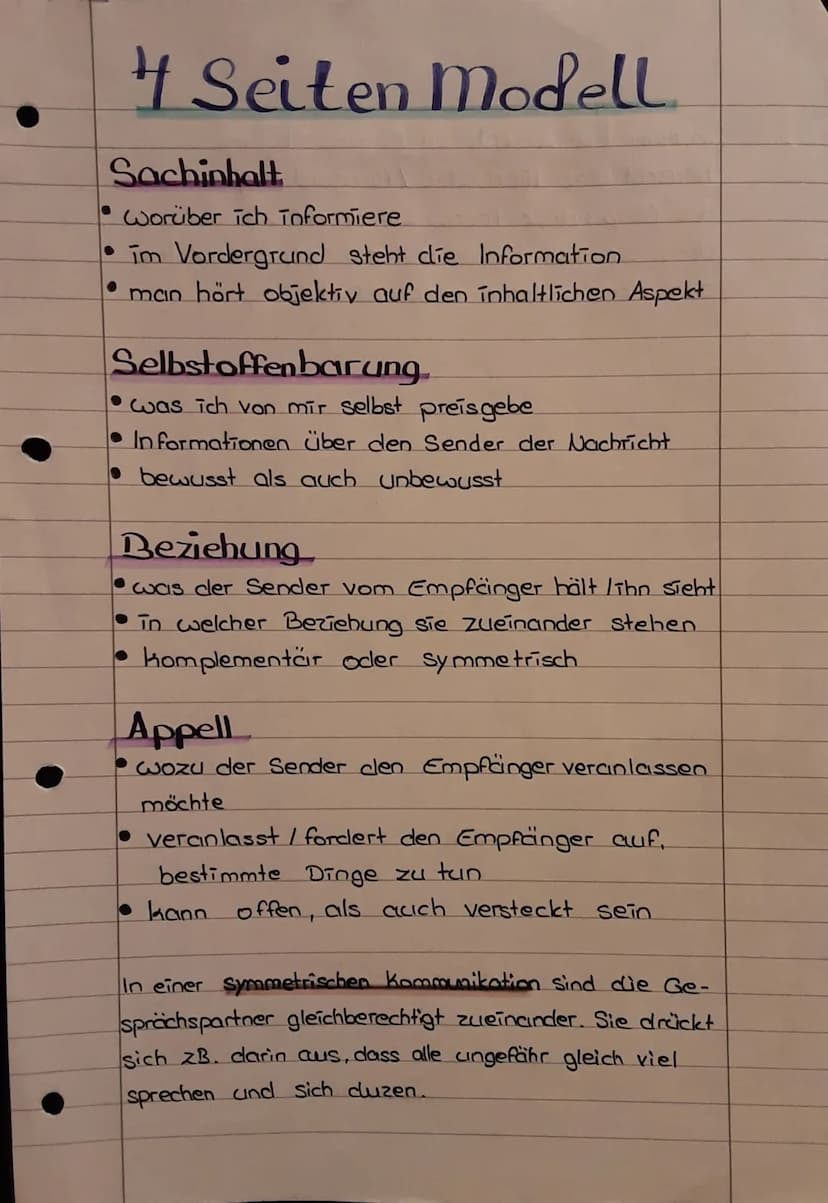 4 Seiten Modell
Sachinhalt
• worüber ich informiere
• im Vordergrund steht die Information
• man hört objektiv auf den inhaltlichen Aspekt
Selbstoffenbarung
• was ich von mir selbst preisgebe
• Informationen über den Sender der Nachricht
• bewusst als auch unbewusst
Beziehung
• was der Sender vom Empfänger hält / ihn sieht
• in welcher Beziehung sie zueinander stehen
• komplementär oder symmetrisch
Appell
• wozu der Sender den Empfänger veranlassen
möchte
• veranlasst / fordert den Empfänger auf,
bestimmte Dinge zu tun
• kann offen, als auch versteckt sein
In einer symmetrischen Kommunikation sind die Ge-
sprächspartner gleichberechtigt zueinander. Sie drückt
sich zB. darin aus, dass alle ungefähr gleich viel
sprechen und sich duzen.